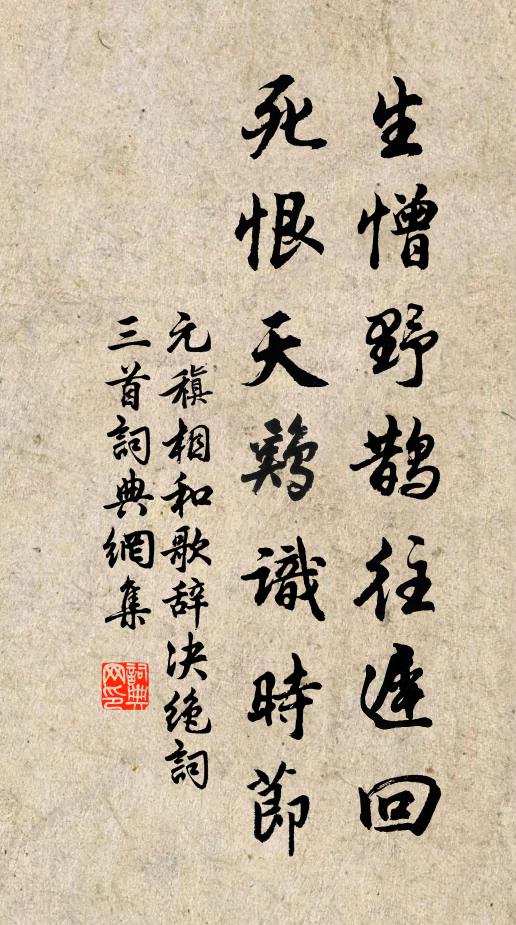 生憎野鵲往遲回
死恨天鷄識時節
元稹相和歌辞决绝詞
三首詞典網集
詞典网印